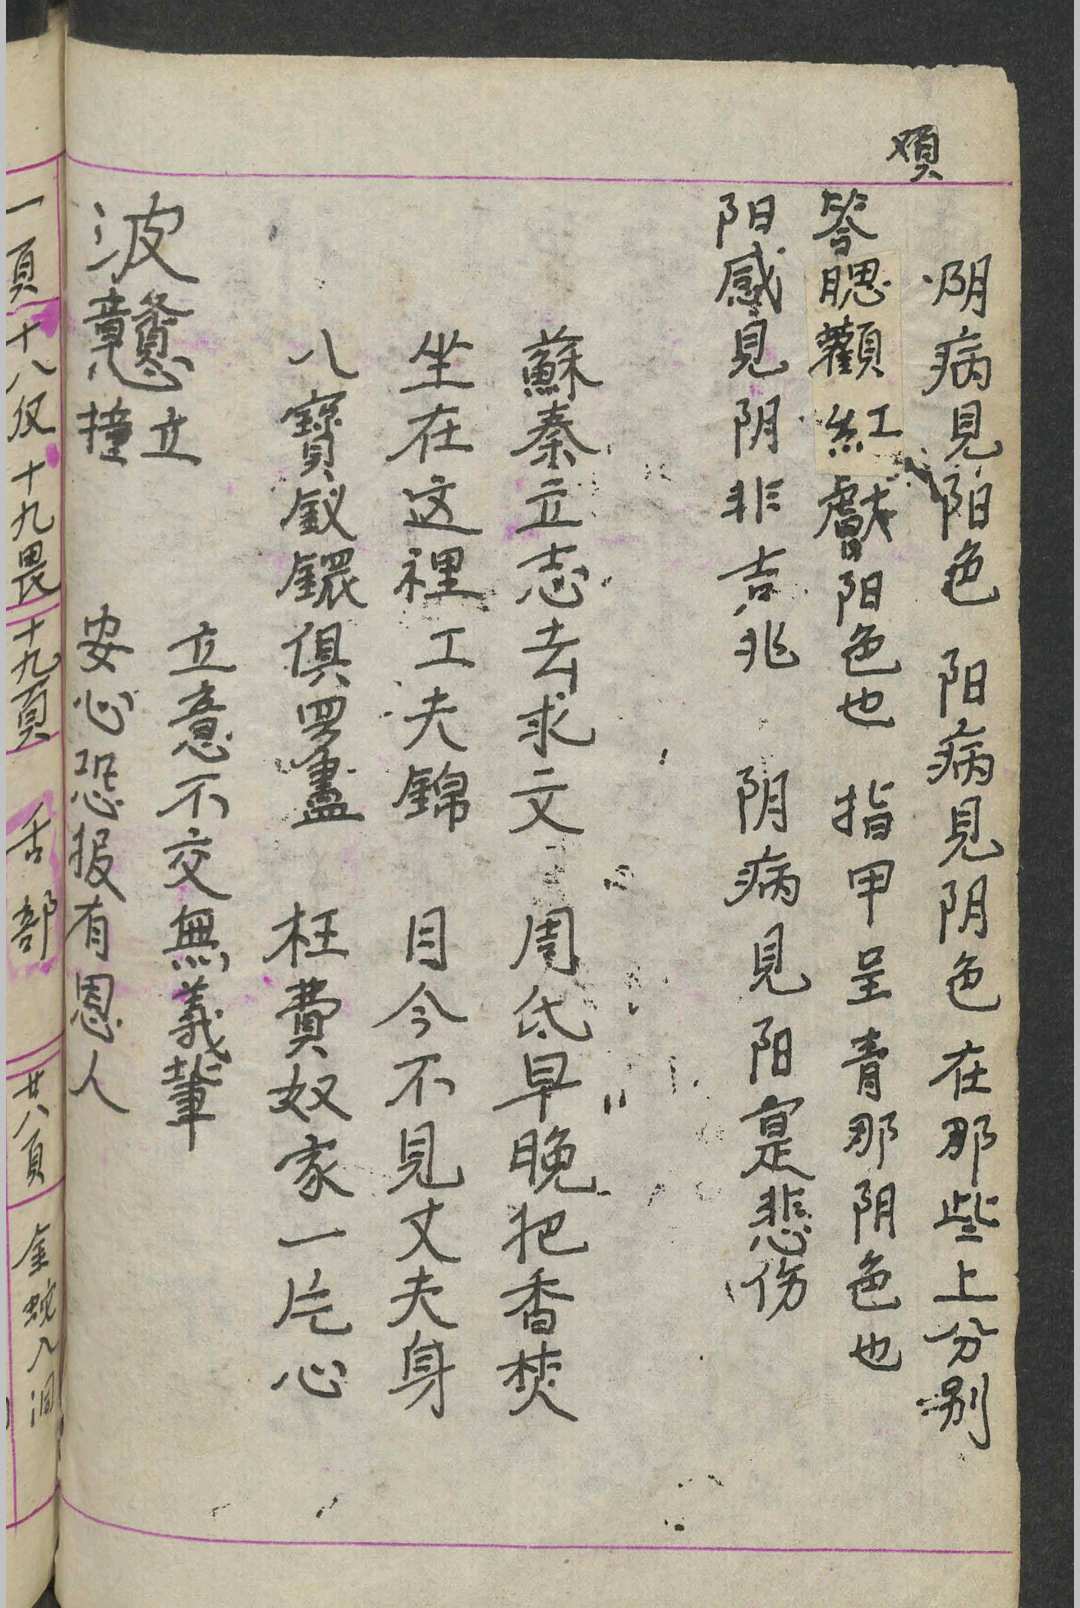 頁
阴病見阳色 阳病見阴色 在那些上分别
答腮顴紅 阳色也 指甲呈青那阴色也
阳感見阴非吉兆 阴病見阳寔悲伤
蘇秦立志去求文 周氏早晚把香焚
坐在这裡工夫錦 目今不見丈夫身
八寶釵鐶俱 盡 枉費奴家一片心
立意不交無義輩
安心恐报有恩人
波 立
撞
一頁
十八仅
十九畏
十九頁
舌部
廿八頁
金蛇入洞